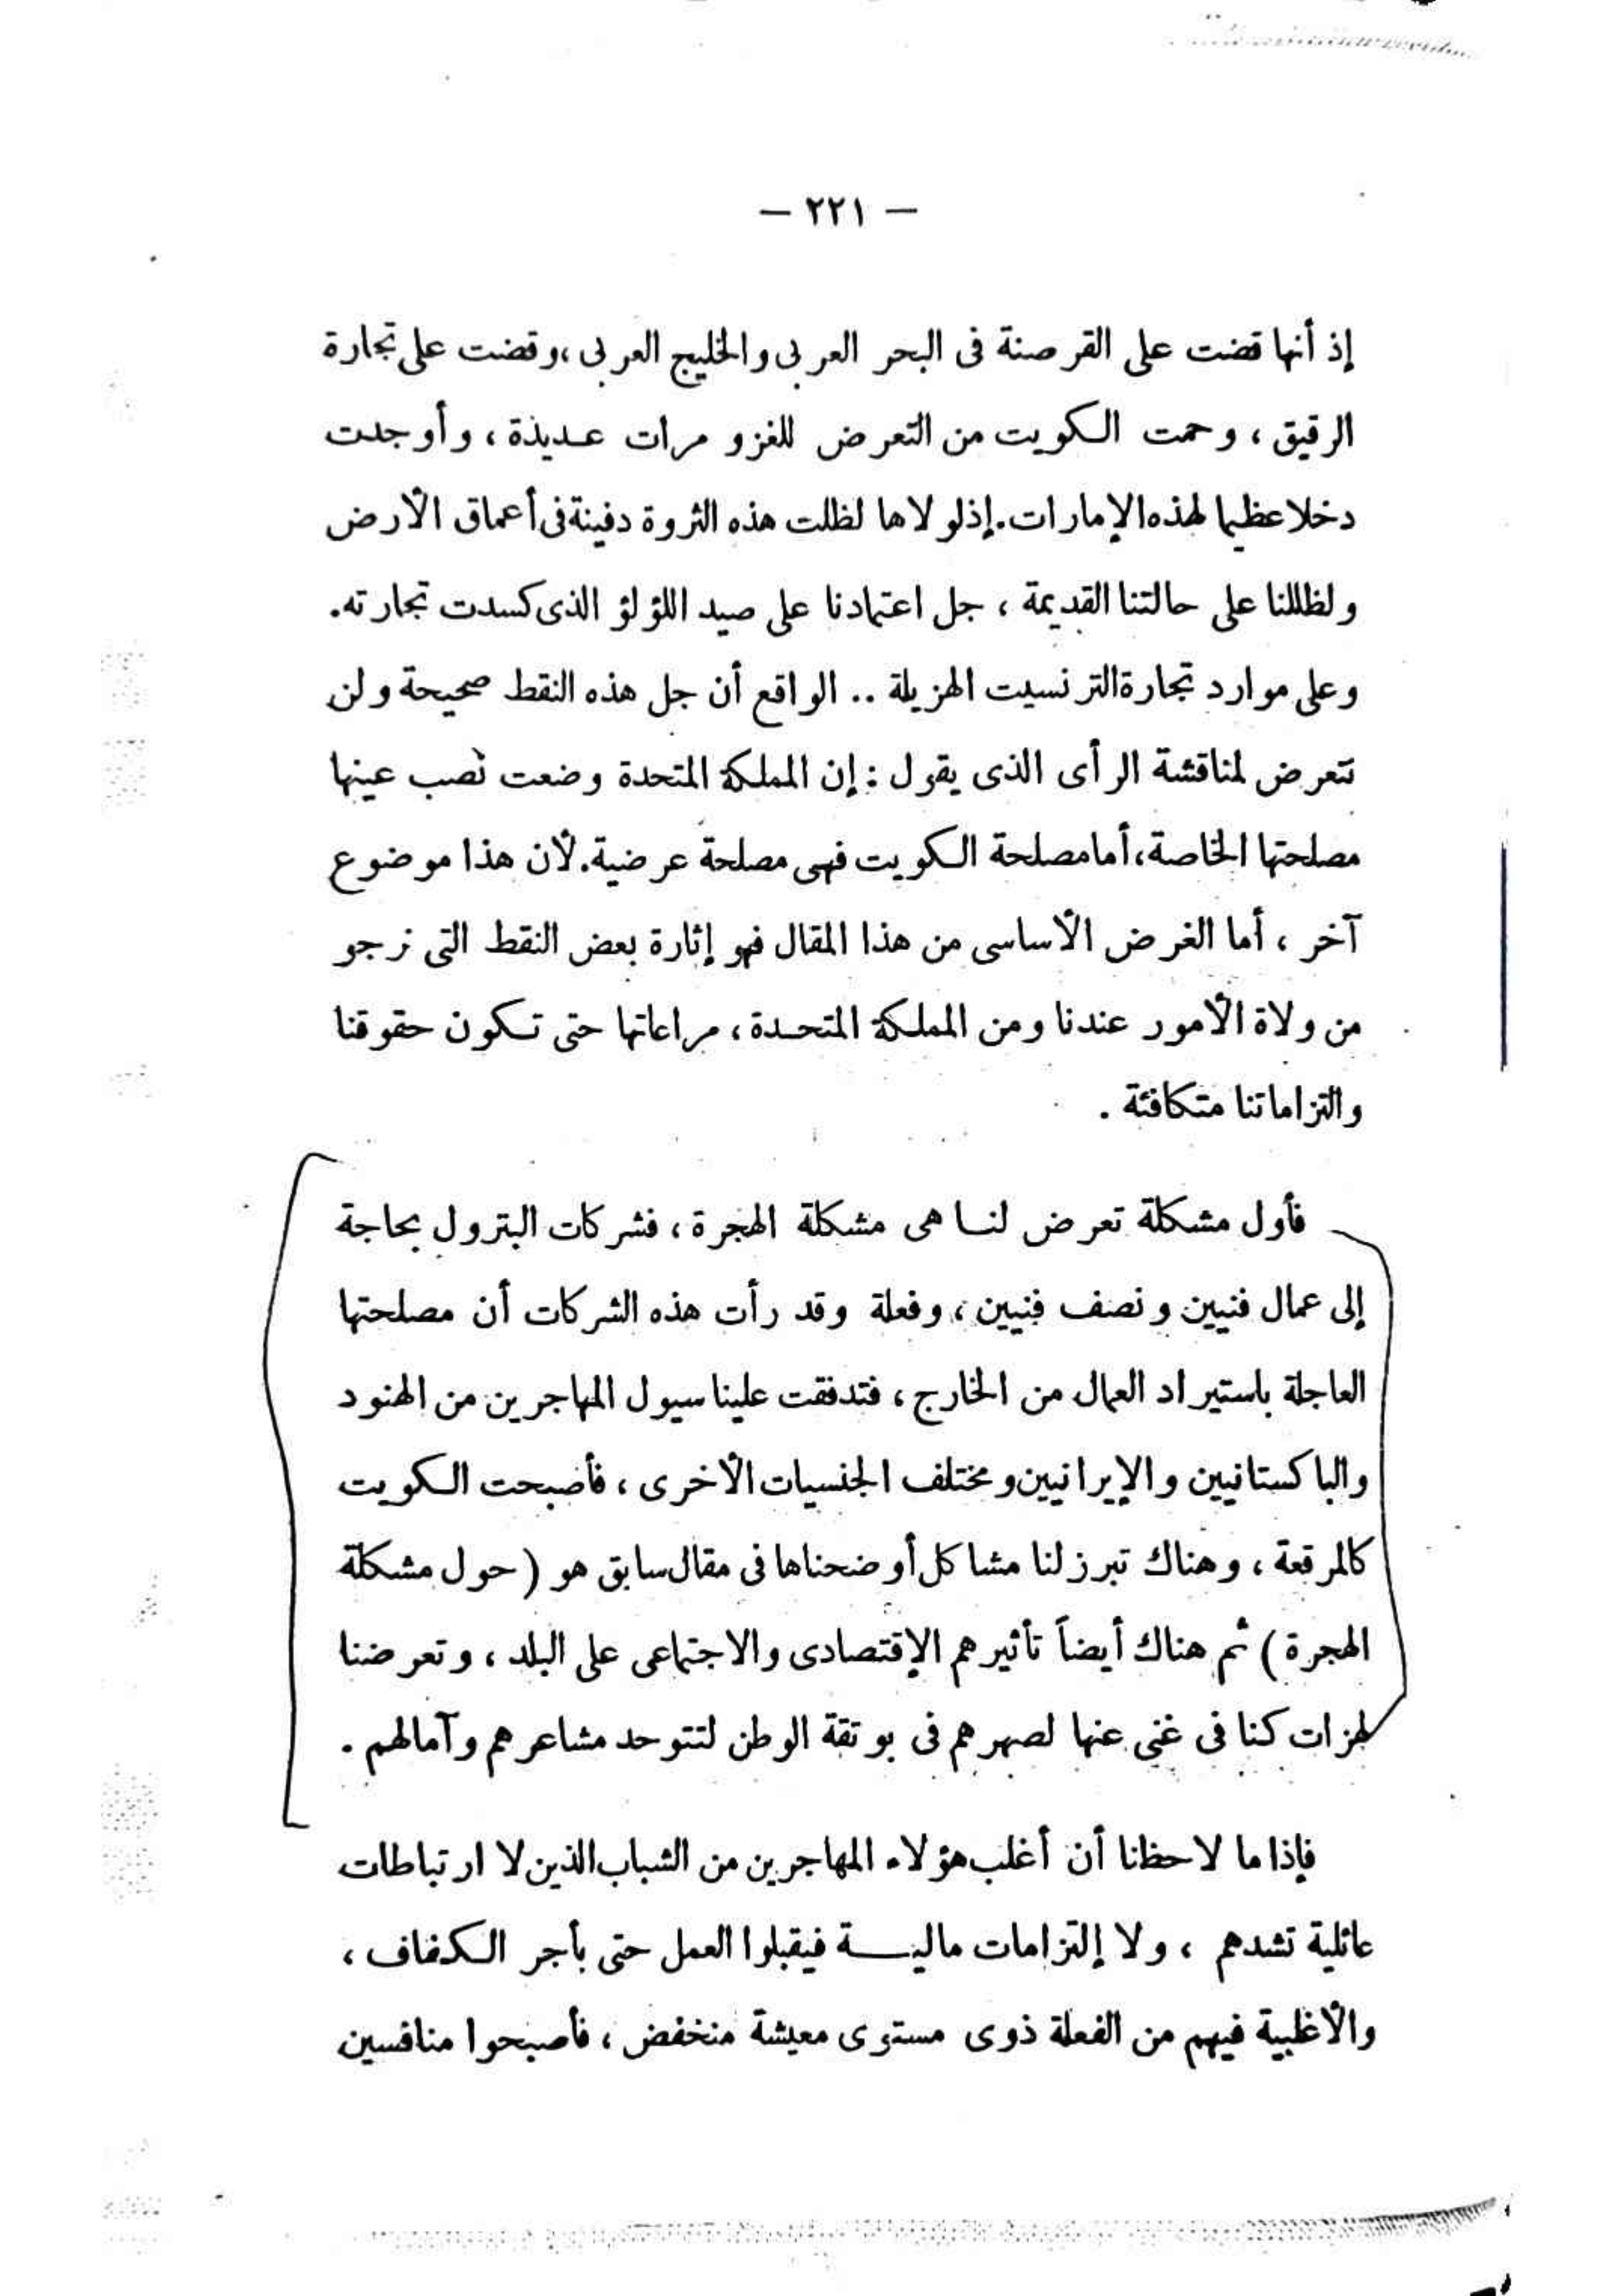 — ٢٢١ —
إذ أنها قضت على القرصنة فى البحر العربى والخليج العربى ، وقضت على تجارة
الرقيق ، وحمت الكويت من التعرض للغزو مرات عديدة ، وأوجدت
دخلا عظيما لهذه الإمارات. إذ لولاها لظلت هذه الثروة دفينة فى أعماق الأرض
ولظللنا على حالتنا القديمة ، جل اعتمادنا على صيد اللؤلؤ الذى كسدت تجارته.
وعلى موارد تجارة الترنسيت الهزيلة .. الواقع أن جل هذه النقط صحيحة ولن
نتعرض لمناقشة الرأى الذى يقول : إن المملكة المتحدة وضعت نصب عينها
مصلحتها الخاصة، أما مصلحة الكويت فهى مصلحة عرضية. لأن هذا موضوع
آخر ، أما الغرض الأساسى من هذا المقال فهو إثارة بعض النقط التى نرجو
من ولاة الأمور عندنا ومن المملكة المتحدة ، مراعاتها حتى تكون حقوقنا
والتزاماتنا متكافئة .
فأول مشكلة تعرض لنا هى مشكلة الهجرة ، فشركات البترول بحاجة
إلى عمال فنيين ونصف فنيين ، وفعلة وقد رأت هذه الشركات أن مصلحتها
العاجلة باستيراد العمال من الخارج ، فتدفقت علينا سيول المهاجرين من الهنود
والباكستانيين والإيرانيين ومختلف الجنسيات الأخرى ، فأصبحت الكويت
كالمرقعة ، وهناك تبرز لنا مشاكل أوضحناها فى مقال سابق هو ( حول مشكلة
الهجرة ) ثم هناك أيضاً تأثيرهم الإقتصادى والاجتماعى على البلد ، وتعرضنا
لهزات كنا فى غنى عنها لصهرهم فى بوتقة الوطن لتتوحد مشاعرهم وآمالهم .
فإذا ما لاحظنا أن أغلب هؤلاء المهاجرين من الشباب الذين لا ارتباطات
عائلية تشدهم ، ولا إلتزامات مالية فيقبلوا العمل حتى بأجر الكفاف ،
والأغلبية فيهم من الفعلة ذوى مستوى معيشة منخفض ، فأصبحوا منافسين